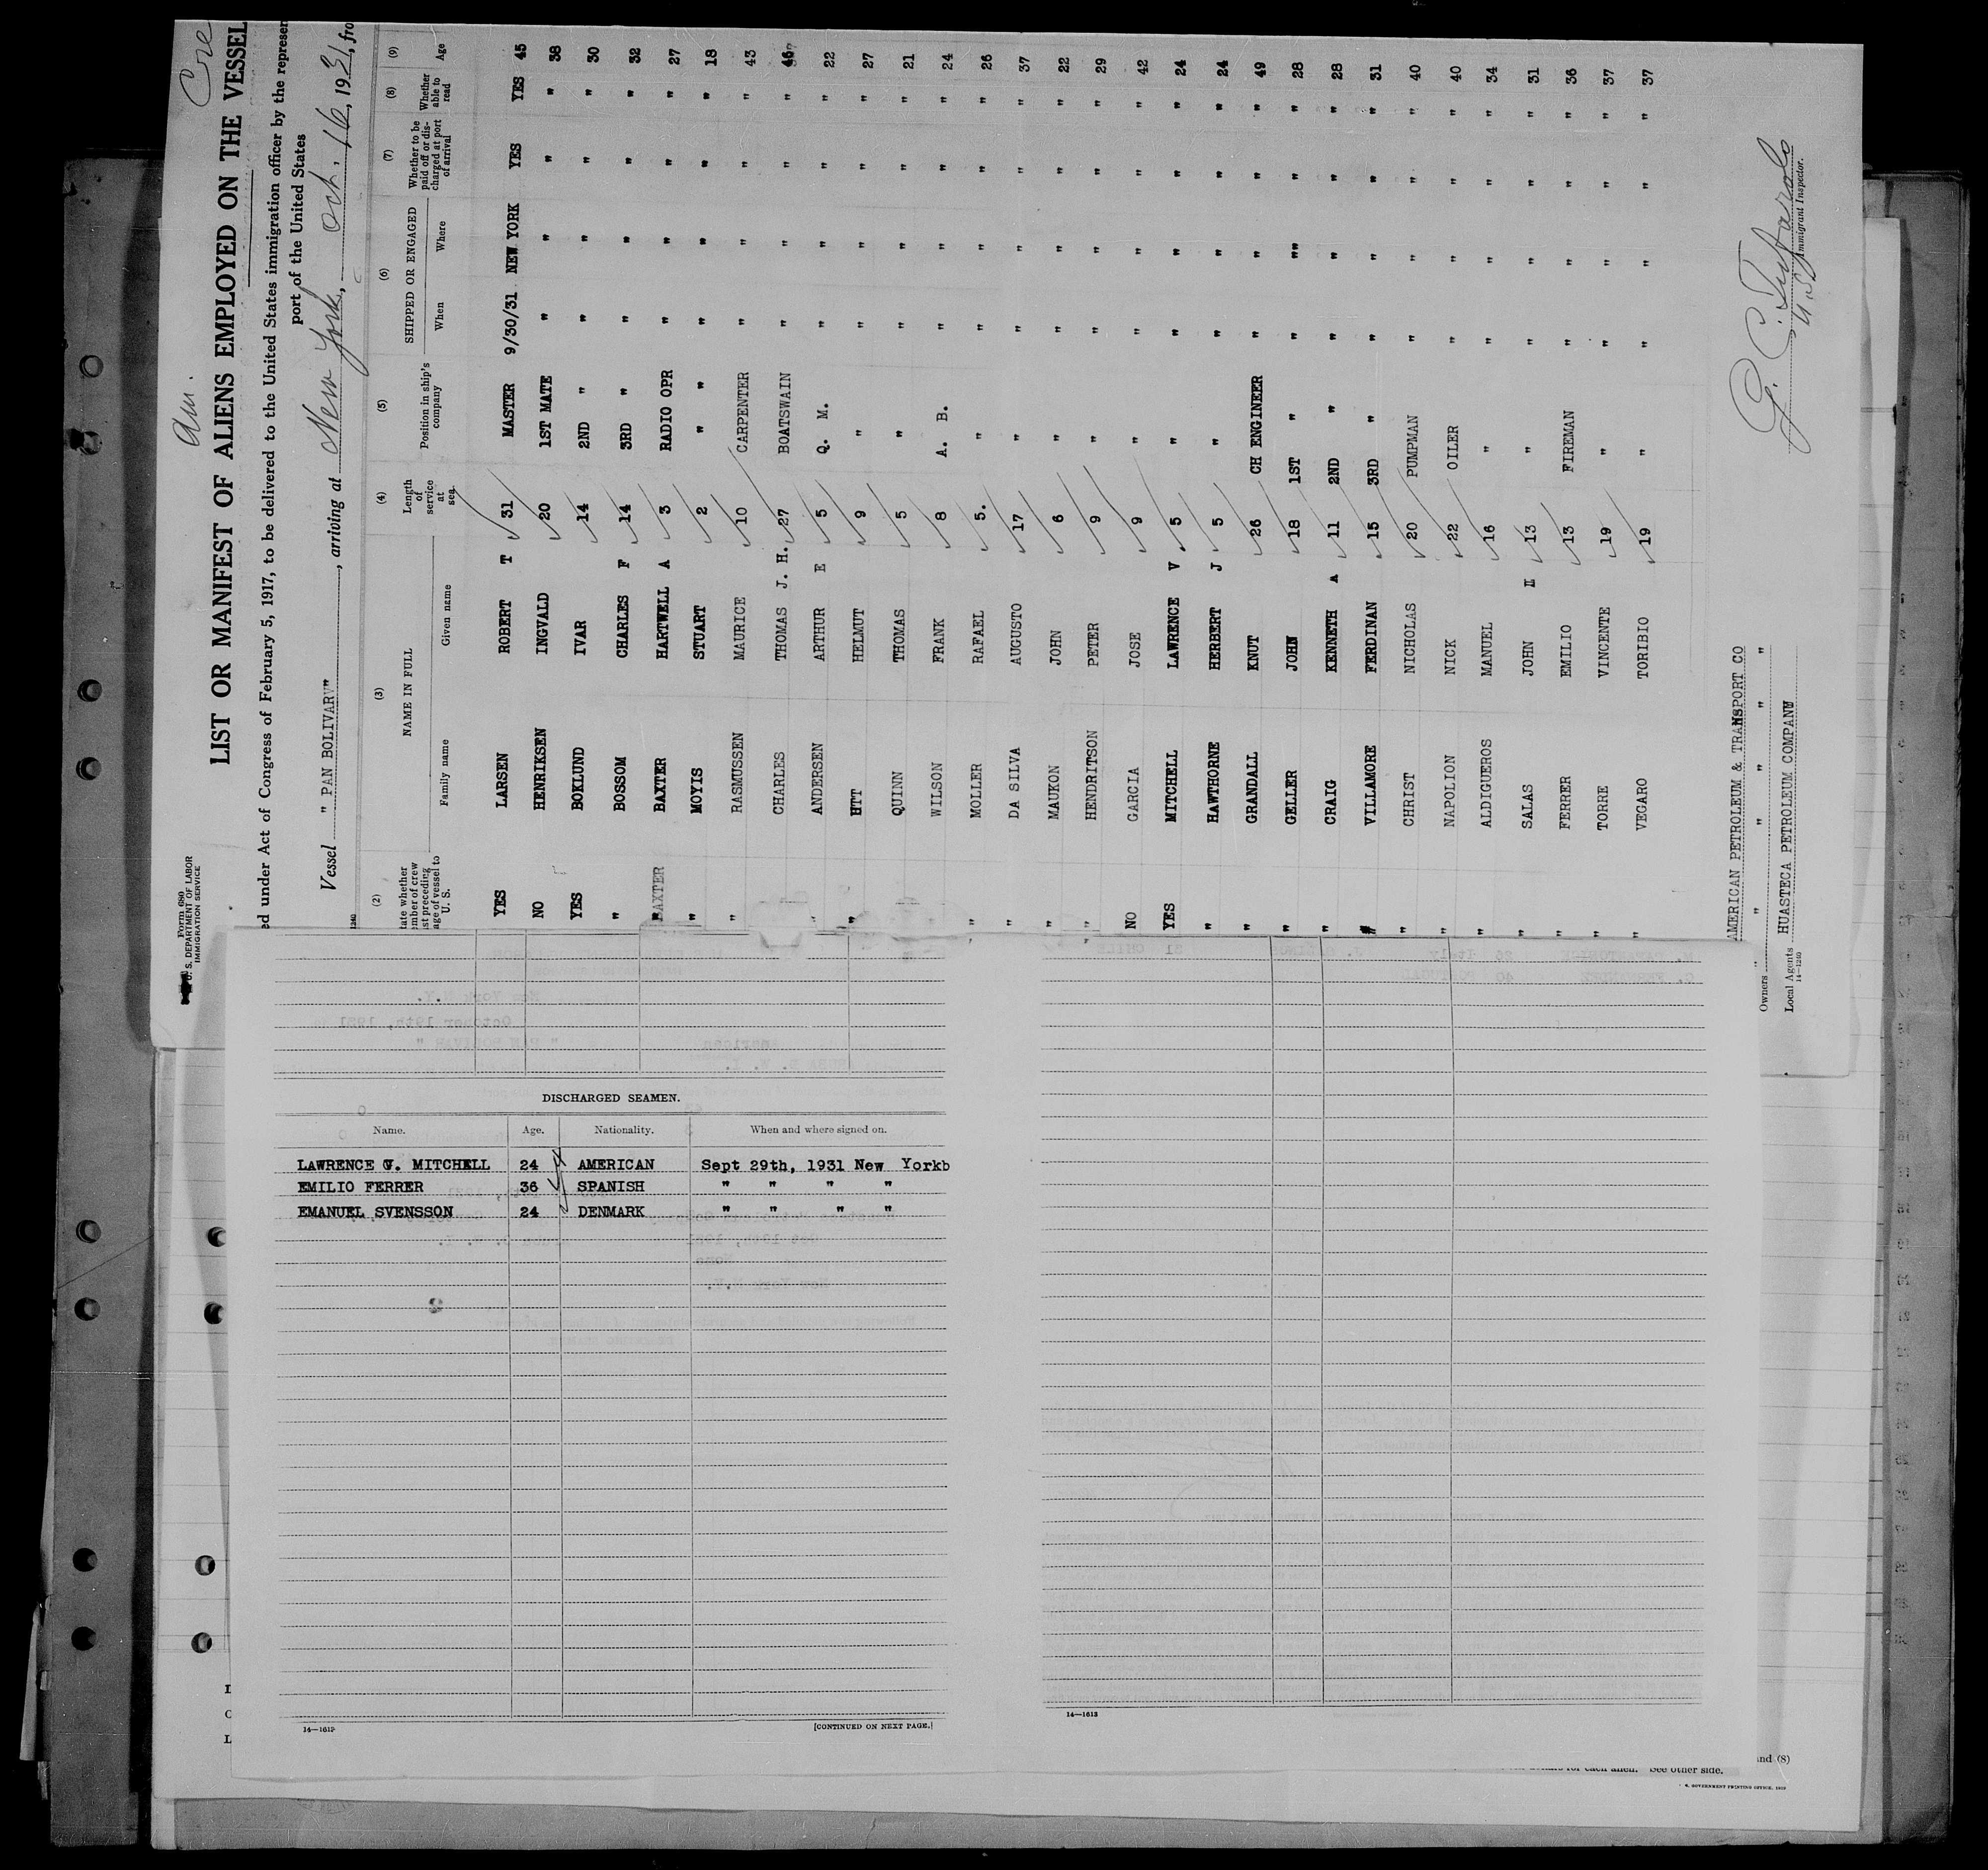 Am. Cre
Form 680
U. S. DEPARTMENT OF LABOR
IMMIGRATION SERVICE
LIST OR MANIFEST OF ALIENS EMPLOYED ON THE VESSEL
ed under Act of Congress of February 5, 1917, to be delivered to the United States immigration officer by the represen
port of the United States
Vessel " PAN BOLIVAR" , arriving at New York, Oct. 16, 1931, fro
(2) (3) (4) (5) (6) (7) (8) (9)
NAME IN FULL SHIPPED OR ENGAGED
tate whether
mber of crew
st preceding
age of vessel to
U. S.
Family name Given name
Length
of
service
at
sea
Position in ship's
company
When Where
Whether to be
paid off or dis-
charged at port
of arrival
Whether
able to
read
Age
YES LARSEN ROBERT T 31 MASTER 9/30/31 NEW YORK YES YES 45
NO HENRIKSEN INGVALD 20 1ST MATE " " " " 38
YES BOKLUND IVAR 14 2ND " " " " " 30
" BOSSOM CHARLES F 14 3RD " " " " " 32
" BAXTER BAXTER HARTWELL A 3 RADIO OPR " " " " 27
" MOYIS STUART 2 " " " " " " 18
" RASMUSSEN MAURICE 10 CARPENTER " " " " 43
CHARLES THOMAS J. H. 27 BOATSWAIN " " " "
" ANDERSEN ARTHUR E 5 Q. M. " " " " 22
" HTT HELMUT 9 " " " " " 27
QUINN THOMAS 5 " " " " " 21
WILSON FRANK 8 A. B. " " " " 24
" MOLLER RAFAEL 5. " " " " " 26
" DA SILVA AUGUSTO 17 " " " " " 37
" MAUKON JOHN 6 " " " " " 22
" HENDRITSON PETER 9 " " " " " 29
NO GARCIA JOSE 9 " " " " " 42
YES MITCHELL LAWRENCE V 5 " " " " " 24
" HAWTHORNE HERBERT J 5 " " " " " 24
" GRANDALL KNUT 26 CH ENGINEER " " " " 49
" GELLER JOHN 18 1ST " " "" " " 28
" CRAIG KENNETH A 11 2ND " " " " " 28
" VILLAMORE FERDINAN 15 3RD " " " " " 31
" CHRIST NICHOLAS 20 PUMPMAN " " " " 40
" NAPOLION NICK 22 OILER " " " " 40
" ALDIGUEROS MANUEL 16 " " " " " 34
" SALAS JOHN 13 " " " " " 31
" FERRER EMILIO 13 FIREMAN " " " " 36
" TORRE VINCENTE 19 " " " " " 37
" VEGARO TORIBIO 19 " " " " " 37
AMERICAN PETROLEUM & TRANSPORT CO
Owners " " " " " "
Local Agents HUASTECA PETROLEUM COMPANY
14—1240
U.S. Immigrant Inspector.
DISCHARGED SEAMEN.
Name. Age. Nationality. When and where signed on.
LAWRENCE V. MITCHELL 24 AMERICAN Sept 29th, 1931 New Yorkb
EMILIO FERRER 36 SPANISH " " " "
EMANUEL SVENSSON 24 DENMARK " " " "
14—1613 [CONTINUED ON NEXT PAGE.]
14—1613
and (8)
for each alien. See other side.
GOVERNMENT PRINTING OFFICE